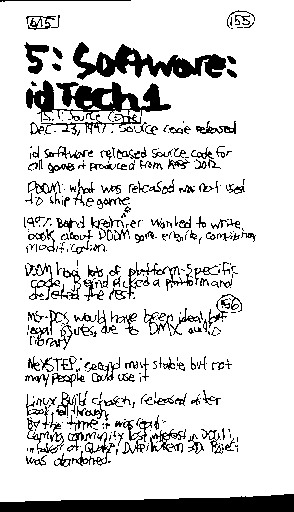 415
155
5: Software:
idTech1
5.1: Source Code
Dec. 23, 1997: Source code released
id software released source code for
all games it produced from 1993-2012
DOOM: what was released was not used
to ship the game
1997: Bernd Kreimeier wanted to write
book about DOOM game engine, compiling,
modification
DOOM had lots of platform-specific
code, Bernd picked a platform and
deleted the rest.
156
MS-DOS would have been ideal, but
legal issues, due to DMX audio
library
NeXTSTEP: second most stable, but not
many people could use it
Linux Build chosen, released after
book fell through
By the time it was
Gaming community lost interest in DOOM,
in favor of Quake, Duke Nukem 3D. Project
was abandoned.